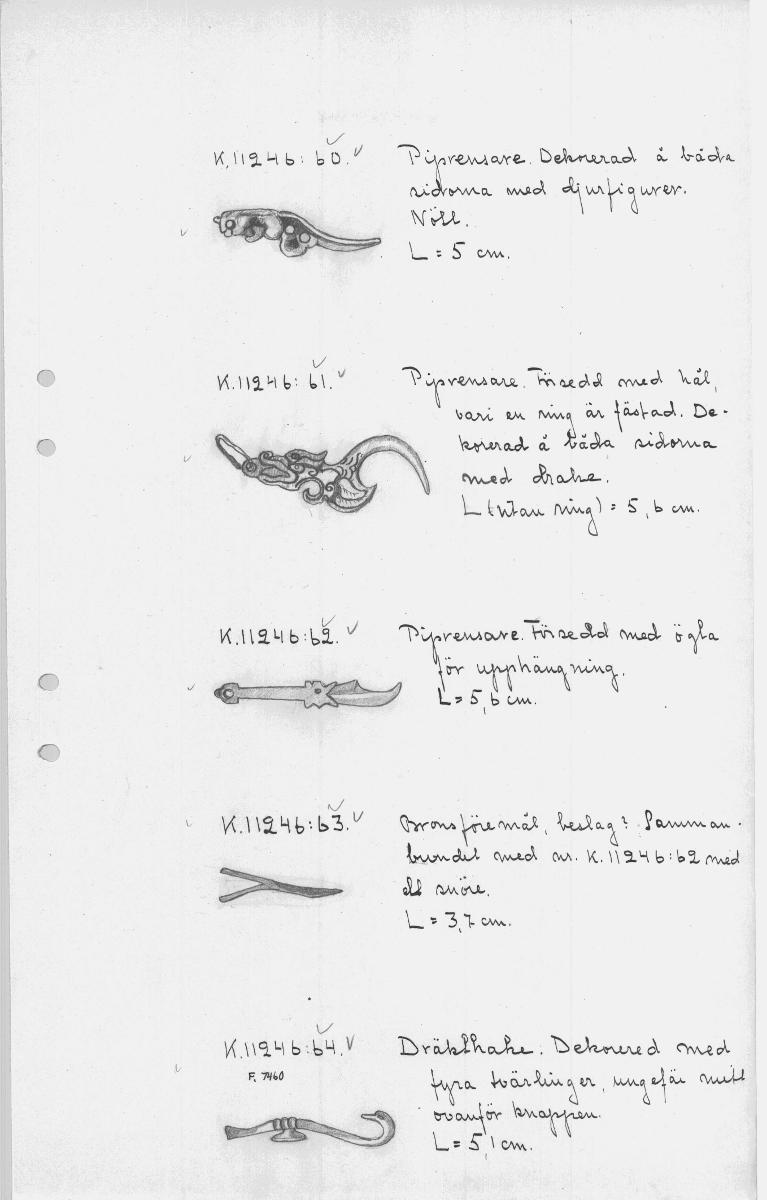 K.11246:60.
Piprensare. Dekorerad å båda
sidorna med djurfigurer.
Nött.
L = 5 cm.
K.11246:61.
Piprensare. Försedd med hål,
vari en ring är fästad. De-
korerad å båda sidorna
med drake.
L (utan ring) = 5,6 cm.
K.11246:62.
Piprensare. Försedd med ögla
för upphängning.
L = 5,6 cm.
K.11246:63.
Bronsföremål, beslag? Samman-
bundet med nr. K.11246:62 med
ett snöre.
L = 3,7 cm.
K.11246:64.
F. 7460
Dräkthake. Dekorered med
fyra tvärlinjer, ungefär mitt
ovanför knappen.
L = 5,1 cm.